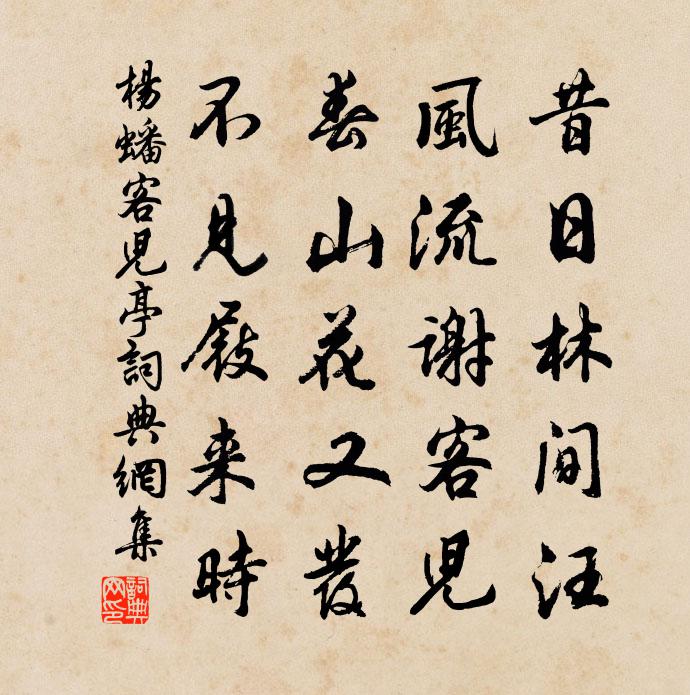 昔日林间汪
風流謝客児
春山花又發
不見屐来時
楊蟠客児亭詞典網集
詞典網印